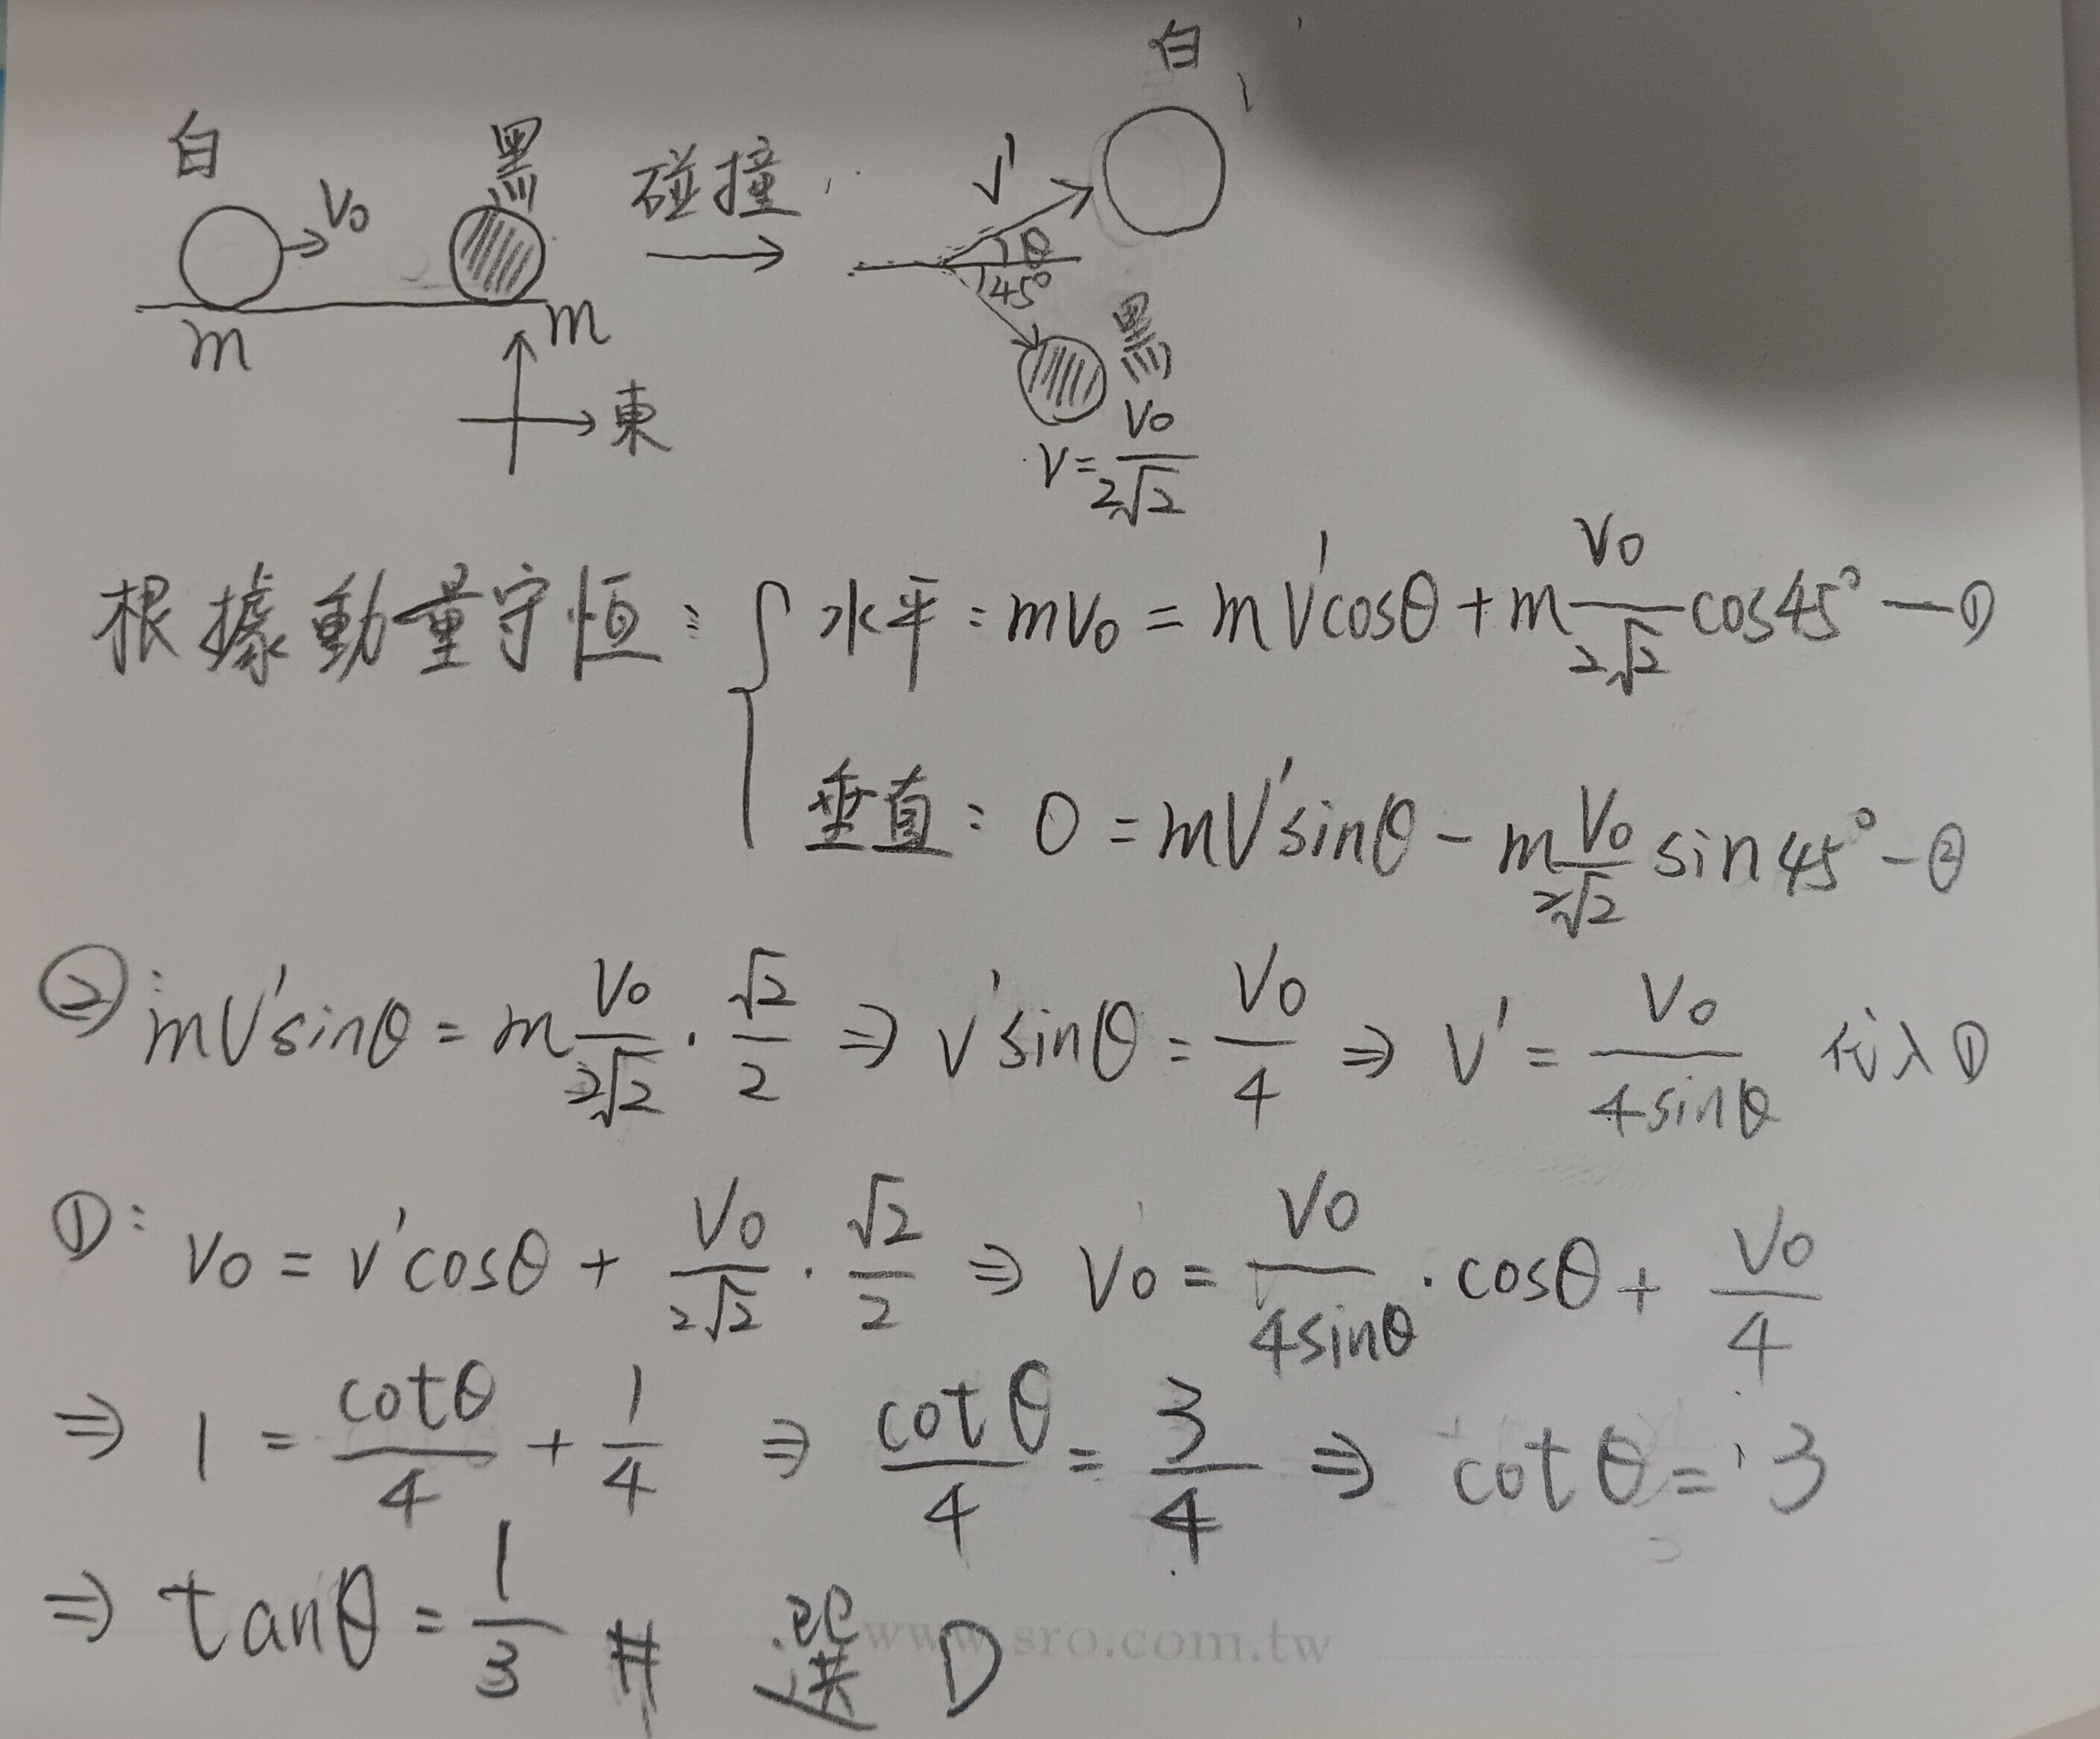 白
白 V₀ 黑 碰撞 V' θ
45°
m m 黑
東 V=V₀/2√2
根據動量守恆：{ 水平：mV₀ = mV'cosθ + m V₀/2√2 cos45° —①
垂直：0 = mV'sinθ - m V₀/2√2 sin45° —②
②：mV'sinθ = m V₀/2√2 · √2/2 ⇒ V'sinθ = V₀/4 ⇒ V' = V₀/4sinθ 代入①
①：V₀ = V'cosθ + V₀/2√2 · √2/2 ⇒ V₀ = V₀/4sinθ · cosθ + V₀/4
⇒ 1 = cotθ/4 + 1/4 ⇒ cotθ/4 = 3/4 ⇒ cotθ = 3
⇒ tanθ = 1/3 # 選 D
www.sro.com.tw